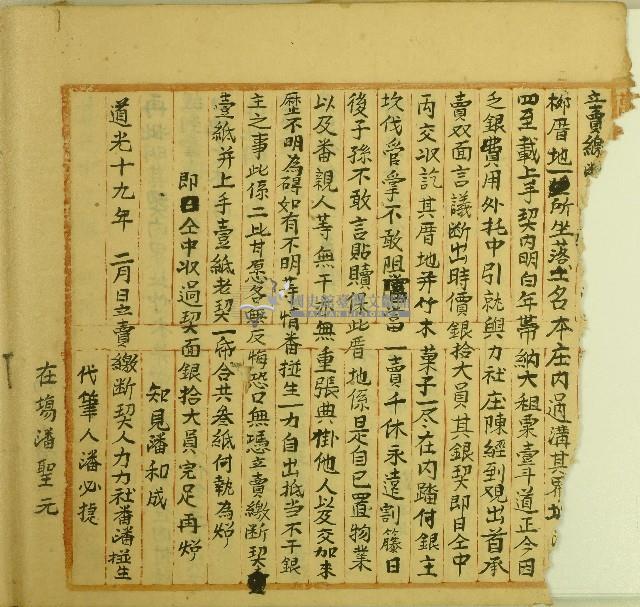 立賣繳
厝地一所坐落土名本庄內過溝其界址
四至載上手契內明白年帶納大租粟壹斗道正今因
乏銀費用外托中引就與力社庄陳經到現出首承
賣双面言議斷出時價銀拾大員其銀契即日仝中
両交收訖其厝地并竹木菓子一尽在內踏付銀主
坎伐管掌不敢阻當留一賣千休永遠割籐日
後子孫不敢言貼贖保此厝地係是自己置物業
以及番親人等無干亦無重張典掛他人以及交加來
歷不明為碍如有不明等情番挃生一力自出抵当不干銀
主之事此係二比甘愿各無反悔恐口無憑立賣繳斷契
壹紙并上手壹紙老契一帋合共叁紙付執為炤
即日仝中收過契面銀拾大員完足再炤
知見潘和成
道光十九年 二月日立賣繳斷契人力力社番潘挃生
代筆人潘必捷
在塲潘聖元
國史館臺灣文獻館